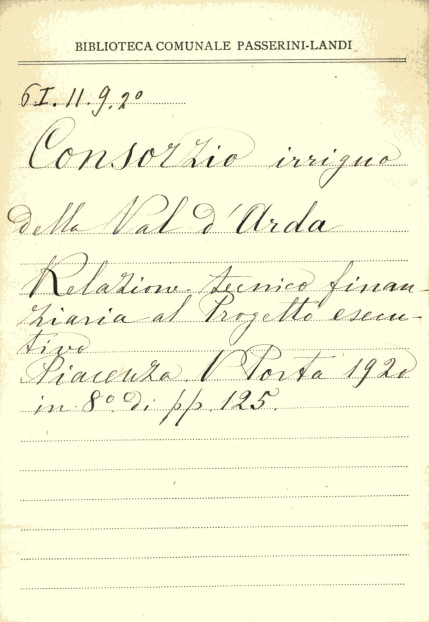 BIBLIOTECA COMUNALE PASSERINI-LANDI
6I. 11. 9. 2º
Consorzio irriguo
della Val d'Arda
Relazione tecnico finan-
ziaria al Progetto esecu-
tivo
Piacenza V Porta 1920
in 8º di pp. 125.